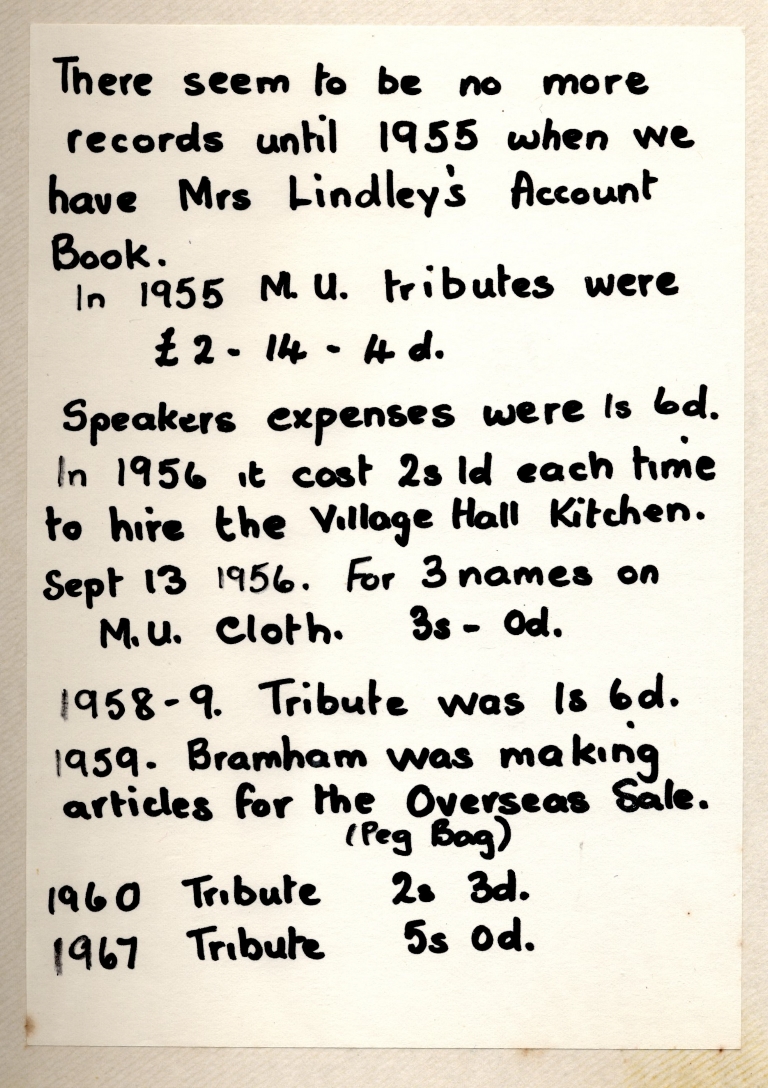 There seem to be no more
records until 1955 when we
have Mrs Lindley's Account
Book.
In 1955 M.U. tributes were
£2-14-4d.
Speakers expenses were 1s 6d.
In 1956 it cost 2s 1d each time
to hire the Village Hall Kitchen.
Sept 13 1956. For 3 names on
M.U. Cloth. 3s-0d.
1958-9. Tribute was 1s 6d.
1959. Bramham was making
articles for the Overseas Sale.
(Peg Bag)
1960 Tribute 2s 3d.
1967 Tribute 5s 0d.